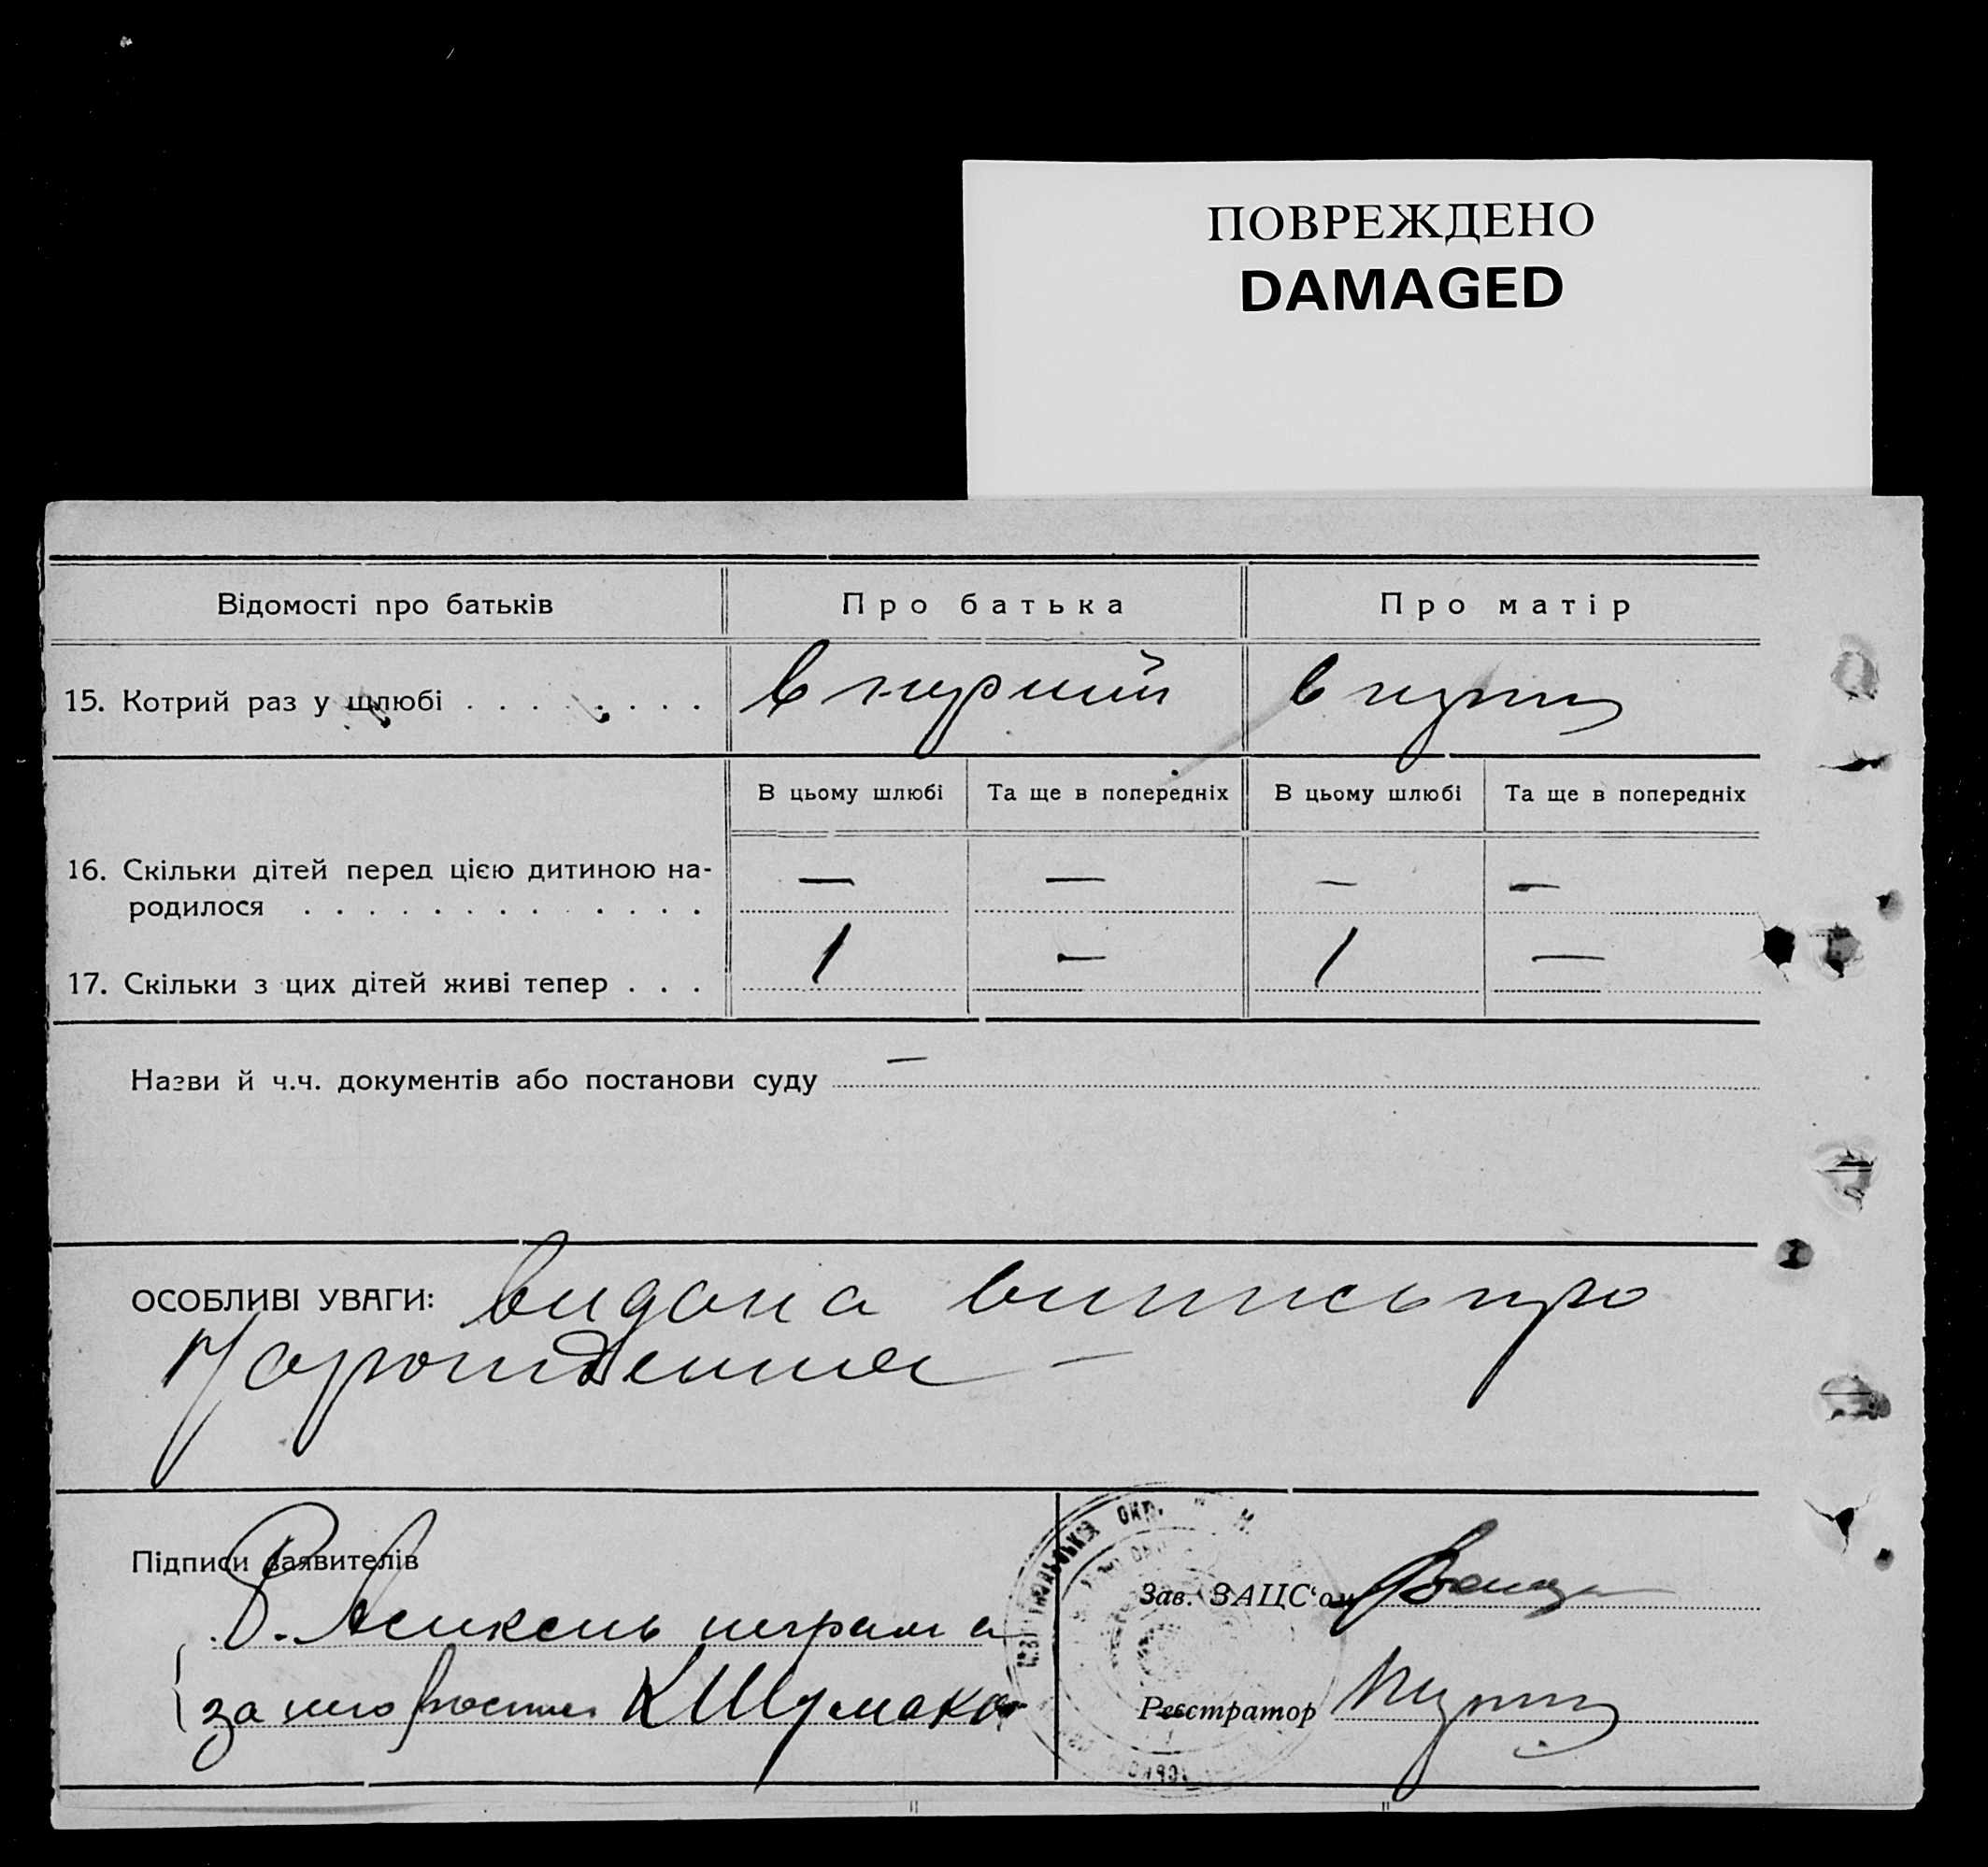 ПОВРЕЖДЕНО
DAMAGED
Відомості про батьків
Про батька
Про матір
15. Котрий раз у шлюбі . . . . . . . .
в перший
В цьому шлюбі
Та ще в попередніх
В цьому шлюбі
Та ще в попередніх
16. Скільки дітей перед цією дитиною на-
родилося . . . . . . . . . . . . .
— — — —
17. Скільки з цих дітей живі тепер . . .
1 — 1 —
Назви й ч.ч. документів або постанови суду —
ОСОБЛИВІ УВАГИ: видана випись про
Підписи заявителів
Зав. ЗАЦС'ом
за
Реєстратор